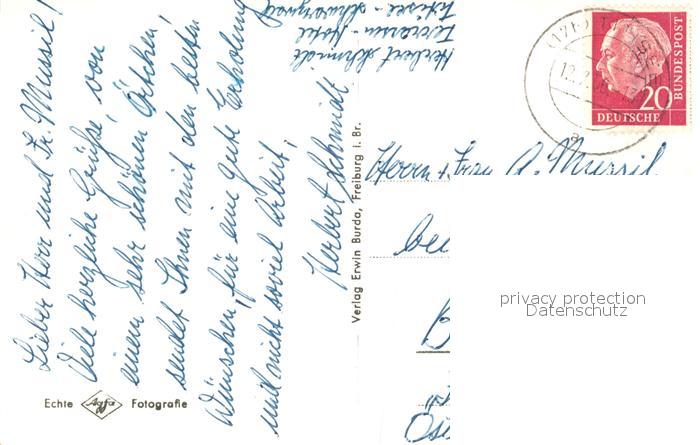 Lieber Herr und Fr. Mussil!
Viele herzliche Grüße, von
einem sehr schönen Örtchen,
sendet Ihnen mit den besten
Wünschen, für eine gute Erholung
und nicht soviel Arbeit,
Herbert Schmidt
Herbert Schmidt
Terrassen-Hotel
Titisee - Schwarzwald
Verlag Erwin Burda, Freiburg i. Br.
Echte Agfa Fotografie
DEUTSCHE BUNDESPOST
20
Herrn + Frau A. Mussil
bei
privacy protection
Datenschutz